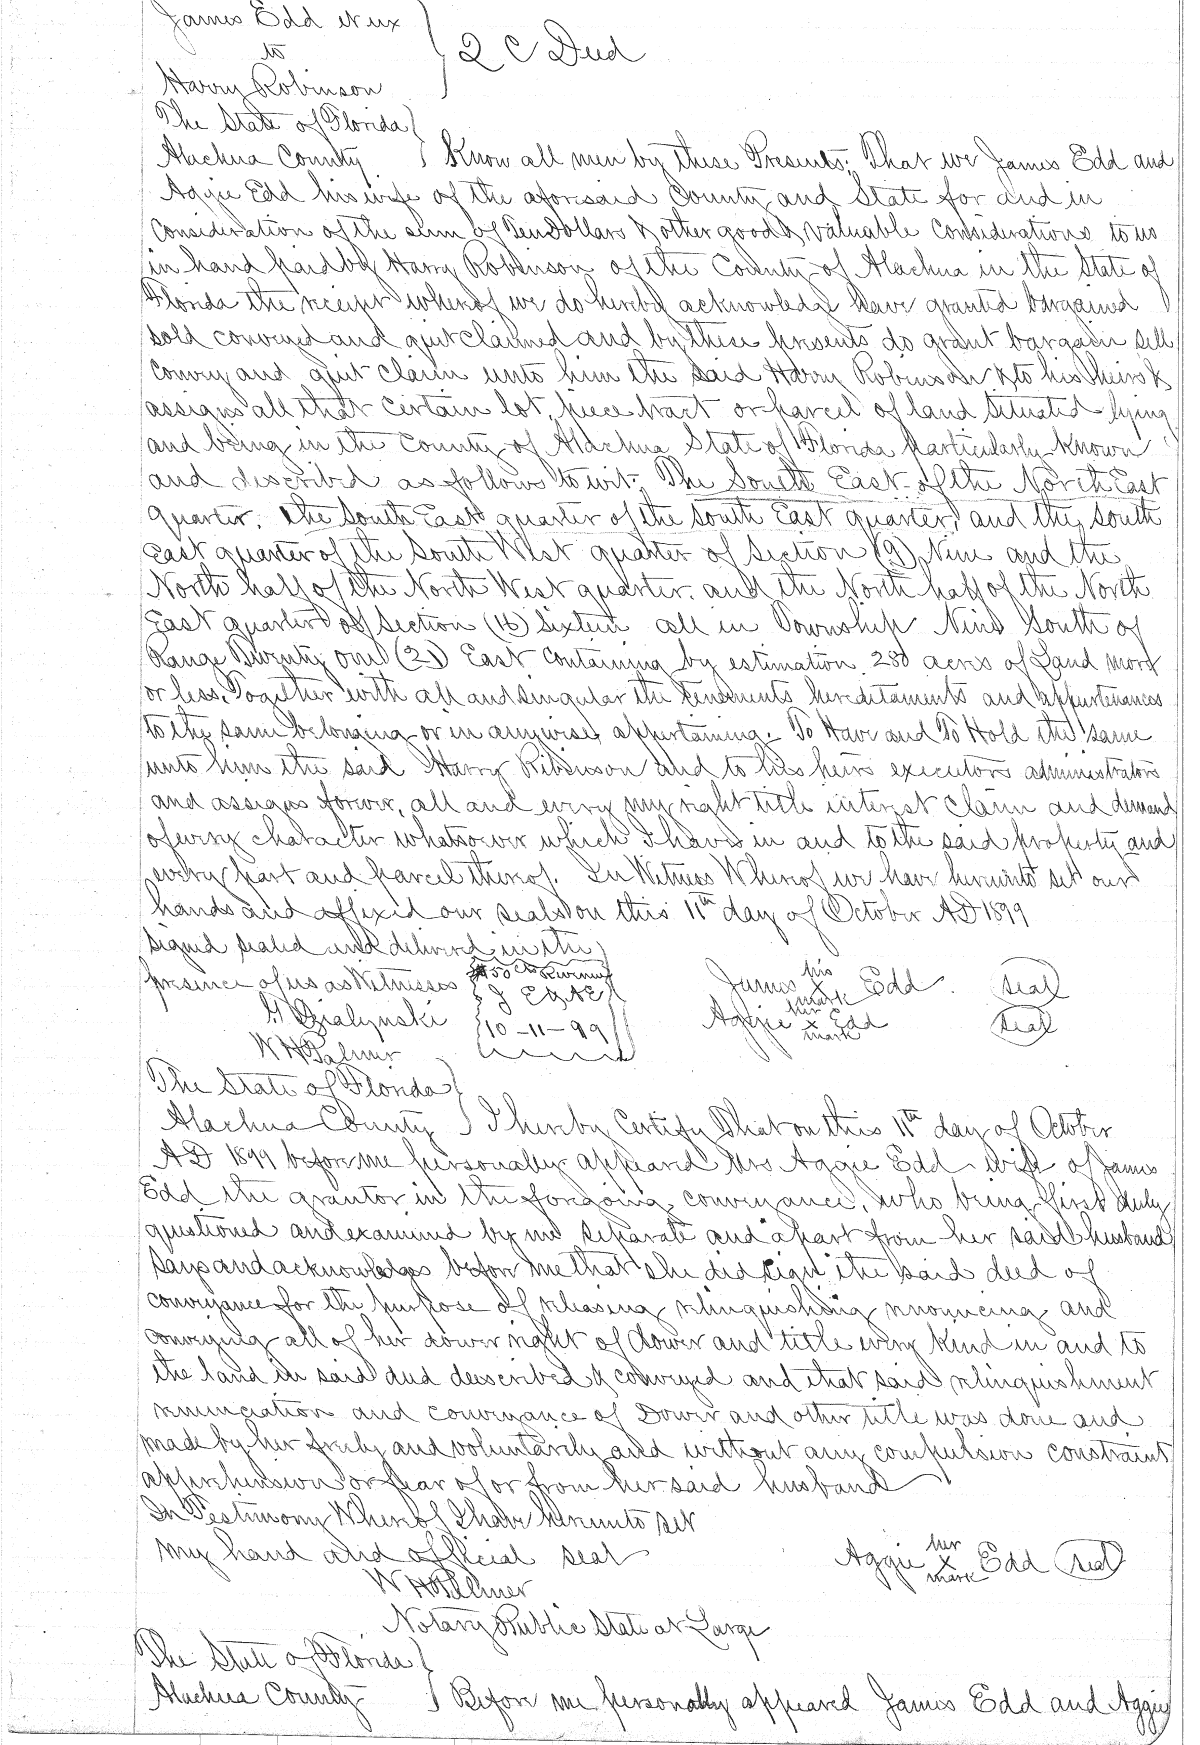 James Edd et ux
to
Harry Robinson
2 C Deed
The State of Florida
Alachua County Know all men by these Presents; That we James Edd and
Aggie Edd his wife of the aforesaid County and State for and in
consideration of the sum of Ten Dollars & other good & valuable considerations to us
in hand paid by Harry Robinson of the County of Alachua in the State of
Florida the receipt whereof we do hereby acknowledge have granted bargained
sold conveyed and quit claimed and by these presents do grant bargain sell
convey and quit claim unto him the said Harry Robinson & to his heirs &
assigns all that certain lot, piece tract or parcel of land situated lying
and being in the County of Alachua State of Florida particularly known
and described as follows to wit; The South East of the North East
quarter, the South East quarter of the South East quarter, and the South
East quarter of the South West quarter of Section (9) Nine and the
North half of the North West quarter, and the North half of the North
East quarter of Section (16) Sixteen all in Township Nine South of
Range Twenty one (21) East containing by estimation 280 acres of Land more
or less, Together with all and singular the tenements hereditaments and appurtenances
to the same belonging or in anywise appertaining. To Have and To Hold the same
unto him the said Harry Robinson and to his heirs executors administrators
and assigns forever, all and every my right title interest claim and demand
of every character whatsoever which I have in and to the said property and
every part and parcel thereof. In Witness Whereof we have hereunto set our
hands and affixed our seals on this 11th day of October AD 1899
signed sealed and delivered in the
presence of us as Witnesses $50 cts Revenue James his x mark Edd seal
G Dzialynski J E & A E Aggie her x mark Edd seal
W H Palmer 10-11-99
The State of Florida
Alachua County I hereby Certify That on this 11th day of October
AD 1899 before me personally appeared Mrs Aggie Edd wife of James
Edd the grantor in the foregoing conveyance, who being first duly
questioned and examined by me separate and apart from her said husband
says and acknowledges before me that she did sign the said deed of
conveyance for the purpose of releasing relinquishing renouncing and
conveying all of her dower right of dower and title every kind in and to
the land in said deed described & conveyed and that said relinquishment
renunciation and conveyance of Dower and other title was done and
made by her freely and voluntarily and without any compulsion constraint
apprehension or fear of or from her said husband
In Testimony Whereof I have hereunto set
my hand and official seal Aggie her x mark Edd seal
W H Palmer
Notary Public State at Large
The State of Florida
Alachua County Before me personally appeared James Edd and Aggie